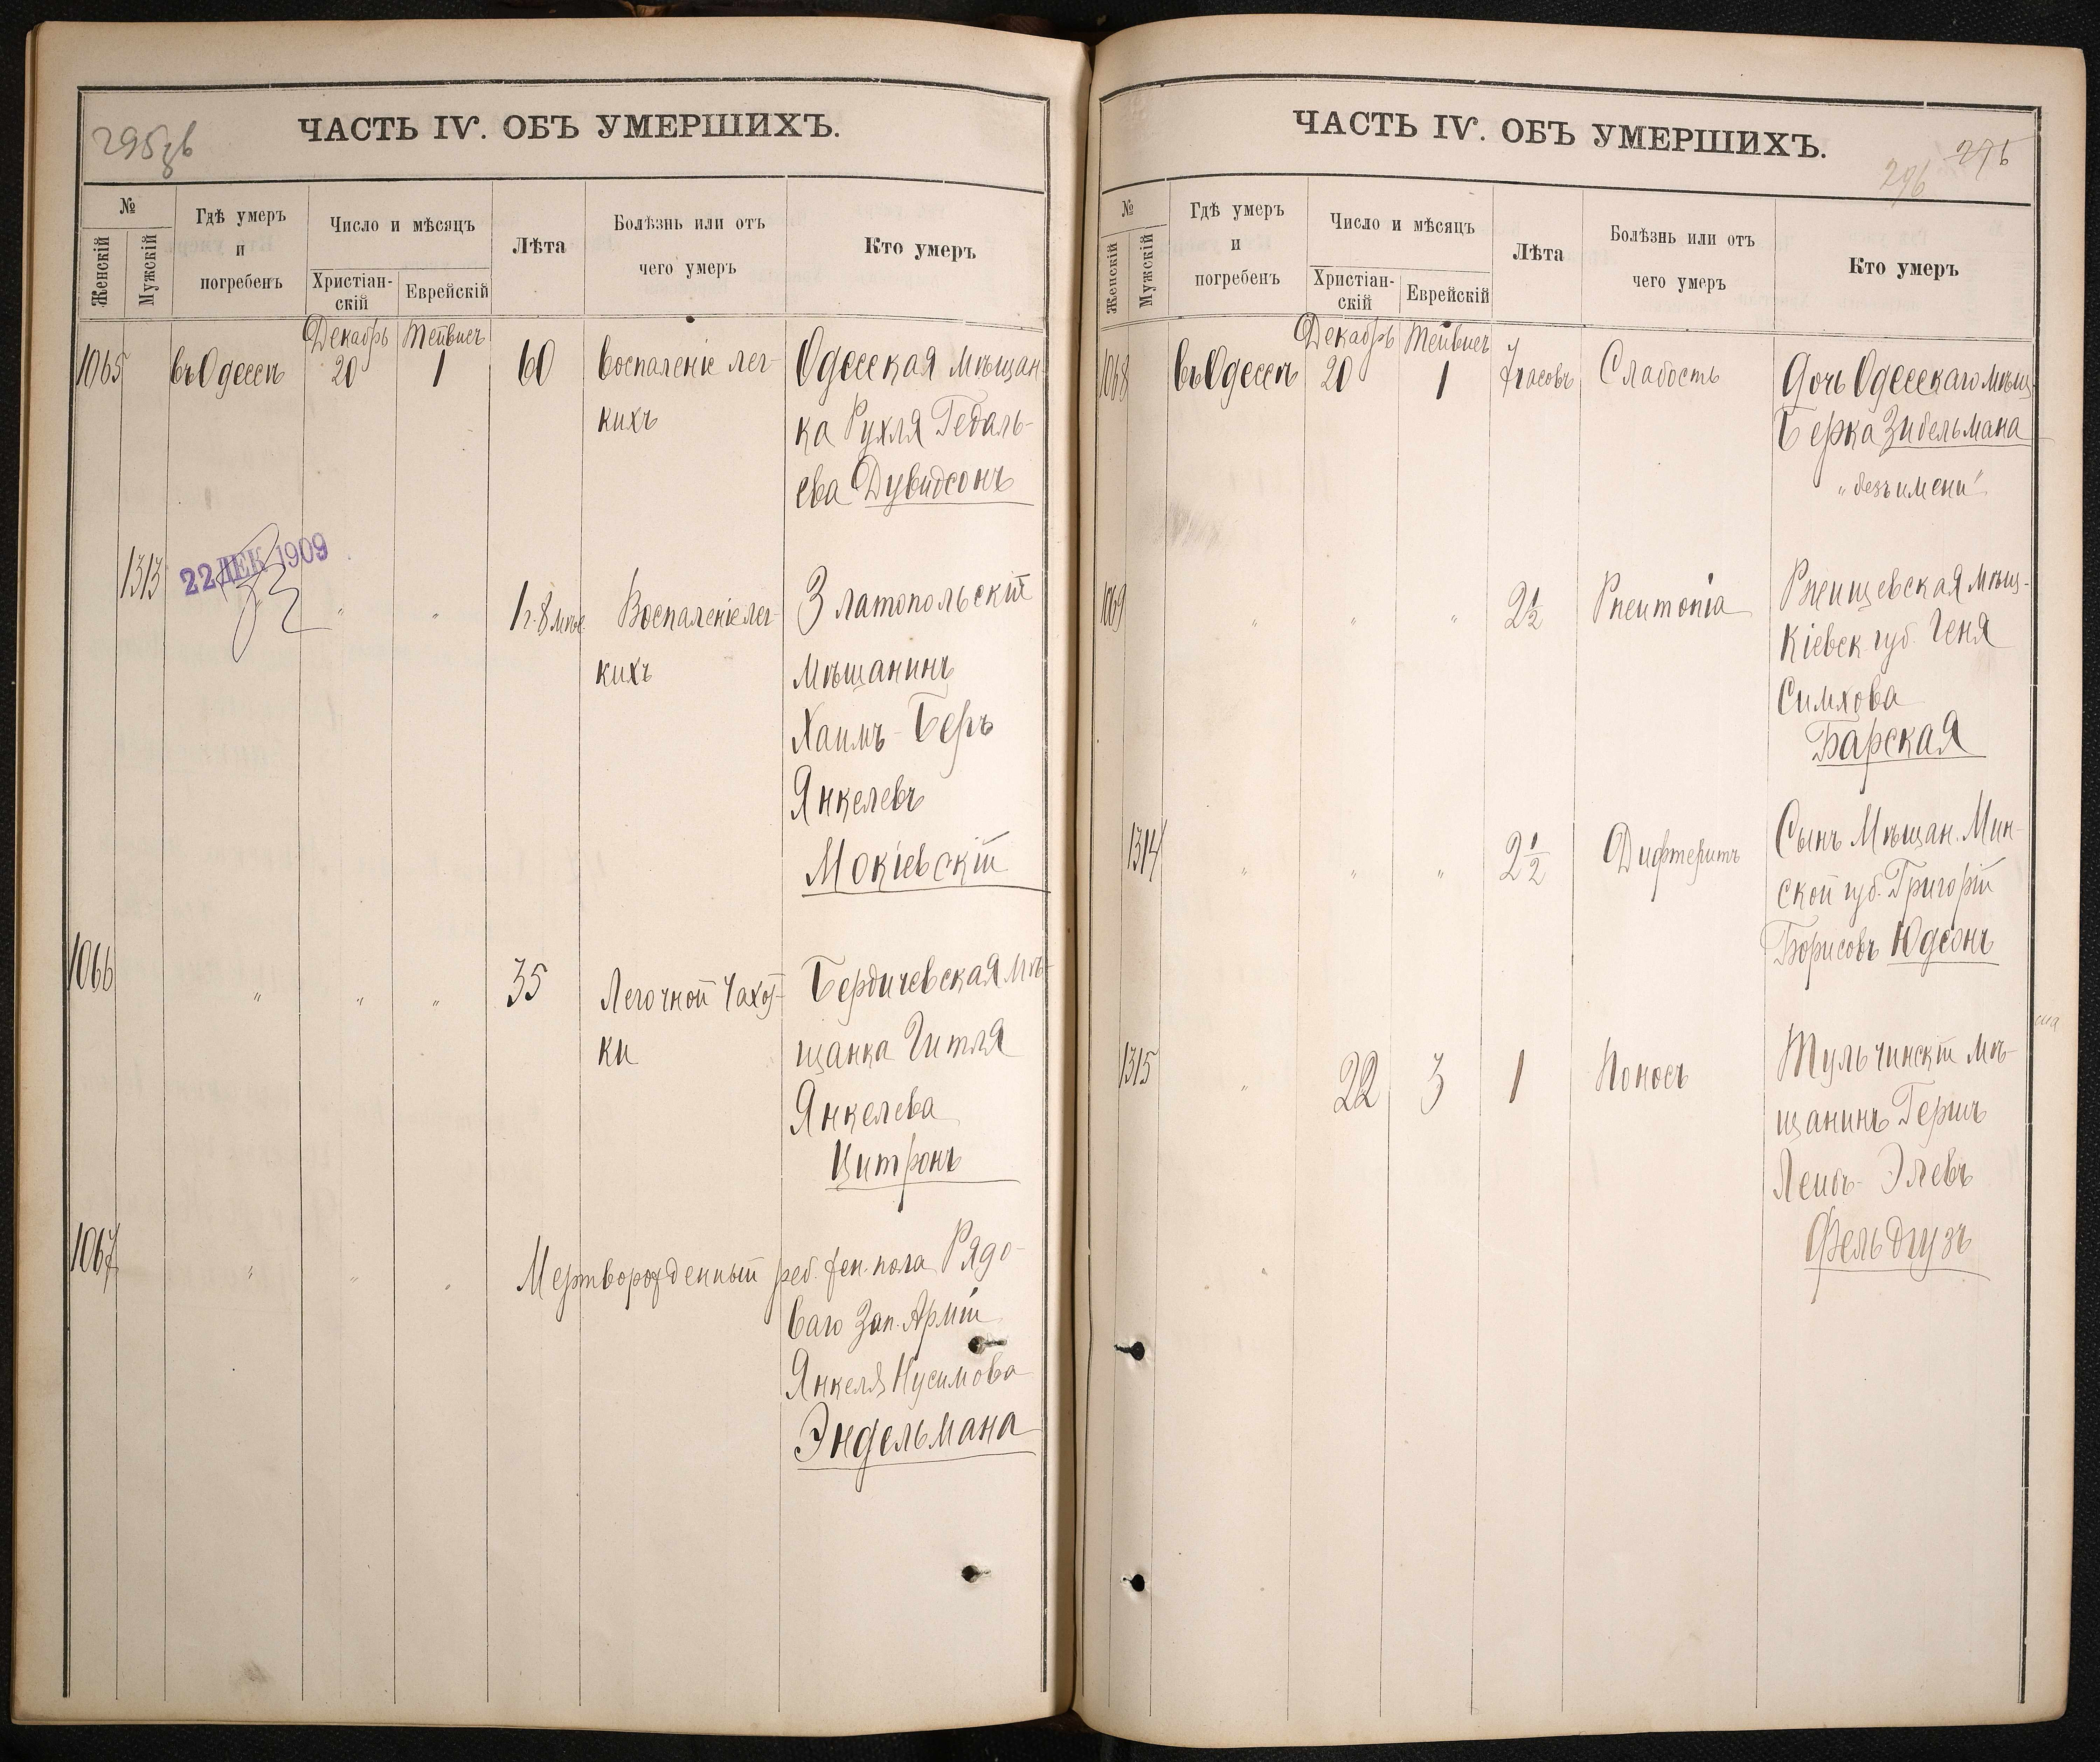 295 зв
ЧАСТЬ IV. ОБЪ УМЕРШИХЪ.
№
Женскій
Мужскій
Гдѣ умеръ
и
погребенъ
Число и мѣсяцъ
Христіан-
скій
Еврейскій
Лѣта
Болѣзнь или отъ
чего умеръ
Кто умеръ
Декабрь Тейвисъ
1065 въ Одессѣ 20 1 60 Воспаленіе лег- Одесская мѣщан-
кихъ ка Рухля Гедаль-
ева Дувидсонъ
1313 22 ДЕК 1909
" " 1 г. 8 мѣс. Воспаленіе лег- Златопольскій
кихъ мѣщанинъ
Хаимъ-Беръ
Янкелевъ
Мокіевскій
1066 " " " 35 Легочной Чахот- Бердичевская мѣ-
ки щанка Гитля
Янкелева
Цитронъ
1067 " " " Мертворожденный реб. жен. пола Рядо-
ваго Зап. Арміи
Янкеля Нусимова
Эндельмана
ЧАСТЬ IV. ОБЪ УМЕРШИХЪ.
275
296
№
Женскій
Мужскій
Гдѣ умеръ
и
погребенъ
Число и мѣсяцъ
Христіан-
скій
Еврейскій
Лѣта
Болѣзнь или отъ
чего умеръ
Кто умеръ
Декабрь Тейвисъ
1068 въ Одессѣ 20 1 часовъ Слабость Дочь Одесскаго мѣщ.
Берка Зидельмана
"безъ имени"
1069 " " " 2½ Pneumonia Ржищевская мѣщ.
Кіевск. губ. Геня
Симхова
Барская
1314 " " " 2½ Дифтеритъ Сынъ Мѣщан. Мин-
ской губ. Григорій
Борисовъ Юдсонъ
1315 " 22 3 1 Поносъ Тульчинскій мѣ-
щанинъ Гершъ
Лейбъ-Элевъ
Фельдгузъ